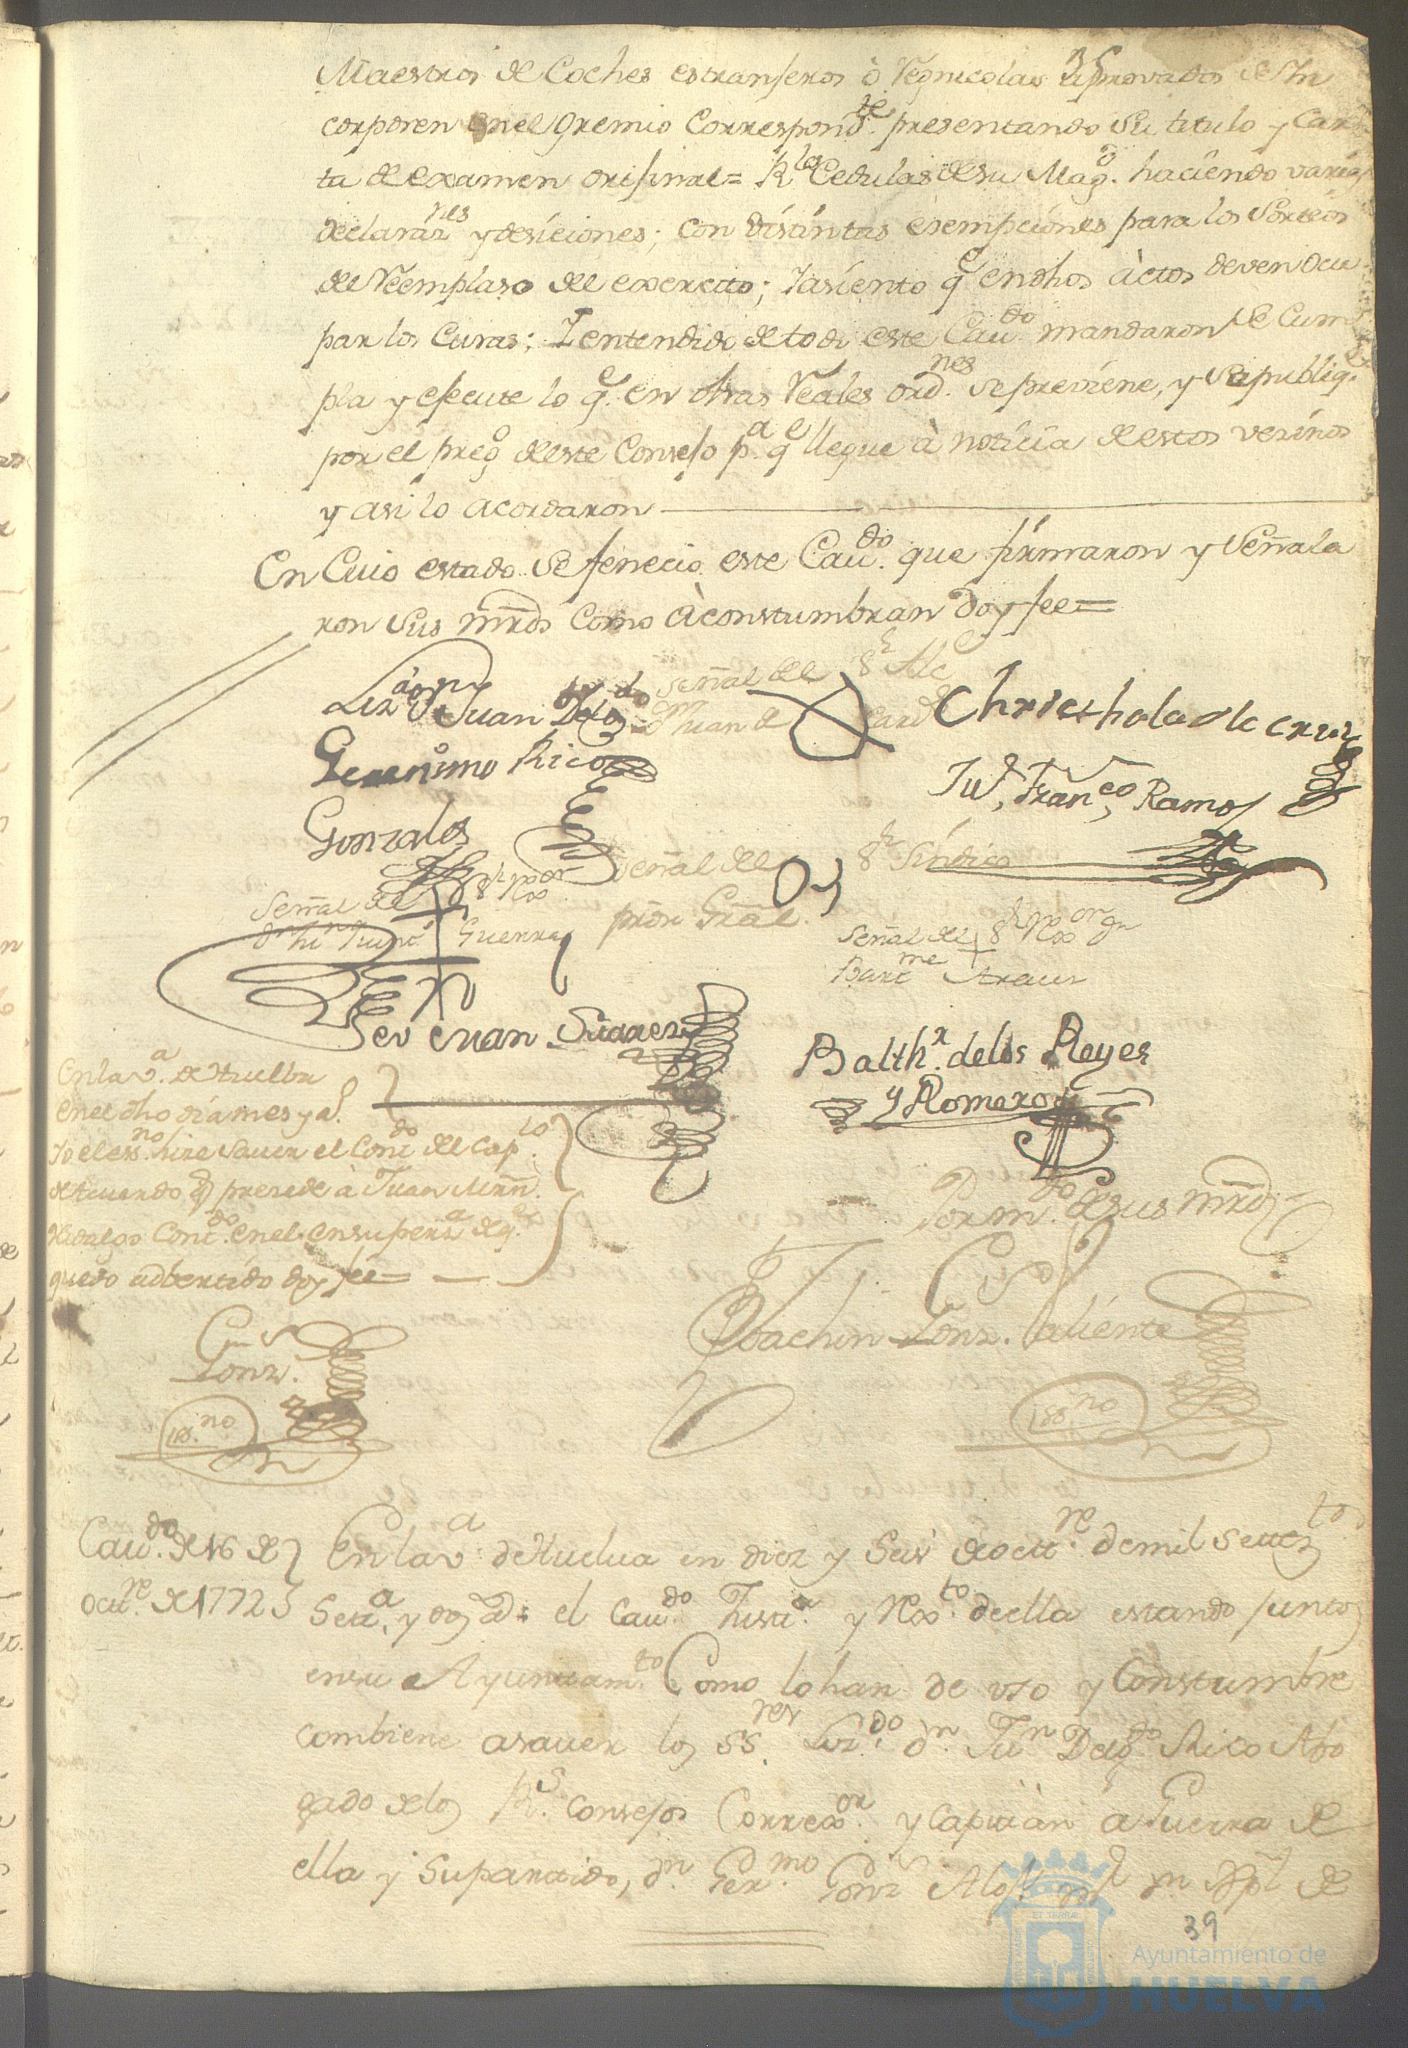 35
Maestros de Coches estranjeros ò Regnicolas aprovados se In
corporen en el Gremio Correspond.te presentando su titulo y Car
ta de examen orijinal = R.les Cedulas de su Mag.d haciendo varias
declaraz.nes y desiciones; con distintas esempciones para los Sorteos
de Reemplaso del exercito; Yasiento q.e en dhos àctos deven Ocu
par los Curas; Y entendido de todo este Cav.do mandaron se Cum
pla y ejecute lo q.e en otras Reales ord.nes se previene, y se publiq.e
por el preg.o de este Consejo p.a q.e llegue à noticia de estos vezinos
y asi lo acordaron
En Cuio estado se fenecio este Cav.do que firmaron y Señala
ron sus mrds Como àcostumbran doy fee =
Liz.do D.n Juan Delg.do
señal del S.r Alc.e
D.n Juan de
Christhobal de la cruz
Geronimo Rico
Gonzales
Ju.n Fran.co Ramos
señal del S.r Síndico
prôr Grâl.
Señal del S.r Rex.or
Guerra
Señal del S.r Rex.or D.n
Bart.me Araus
Sevastian Suarez
Balth.r de los Reyes
y Romero
En la v.a de Huelba
en el dho dia mes y a.o
Yo el es.no hize saver el Cont.do del Cap.lo
de Acuerdo q precede à Juan Mrñ.
Hidalgo Cont.do en el en su pers.a de q.e
quedo adbertido doy fee =
Gonz.
ess.no
Por m.do de sus mrds
Joachin Gonz. Valiente
ess.no
Cav.do de 16 de
Oct.re de 1772
En la v.a de Huelva en diez y seis de oct.re de mil setez.tos
Set.a y dos a.s el Cav.do Just.a y Rex.to de ella estando juntos
en su Ayuntam.to Como lo han de uso y Constumbre
combiene asaver los SS.res Liz.do D.n Ju.n Delg.do Rico Abo
gado de los R.s Consejos Correx.or y Capitàn à Guerra de
ella y su partido, D.n Ger.mo Gonz
39
Ayuntamiento de
HUELVA